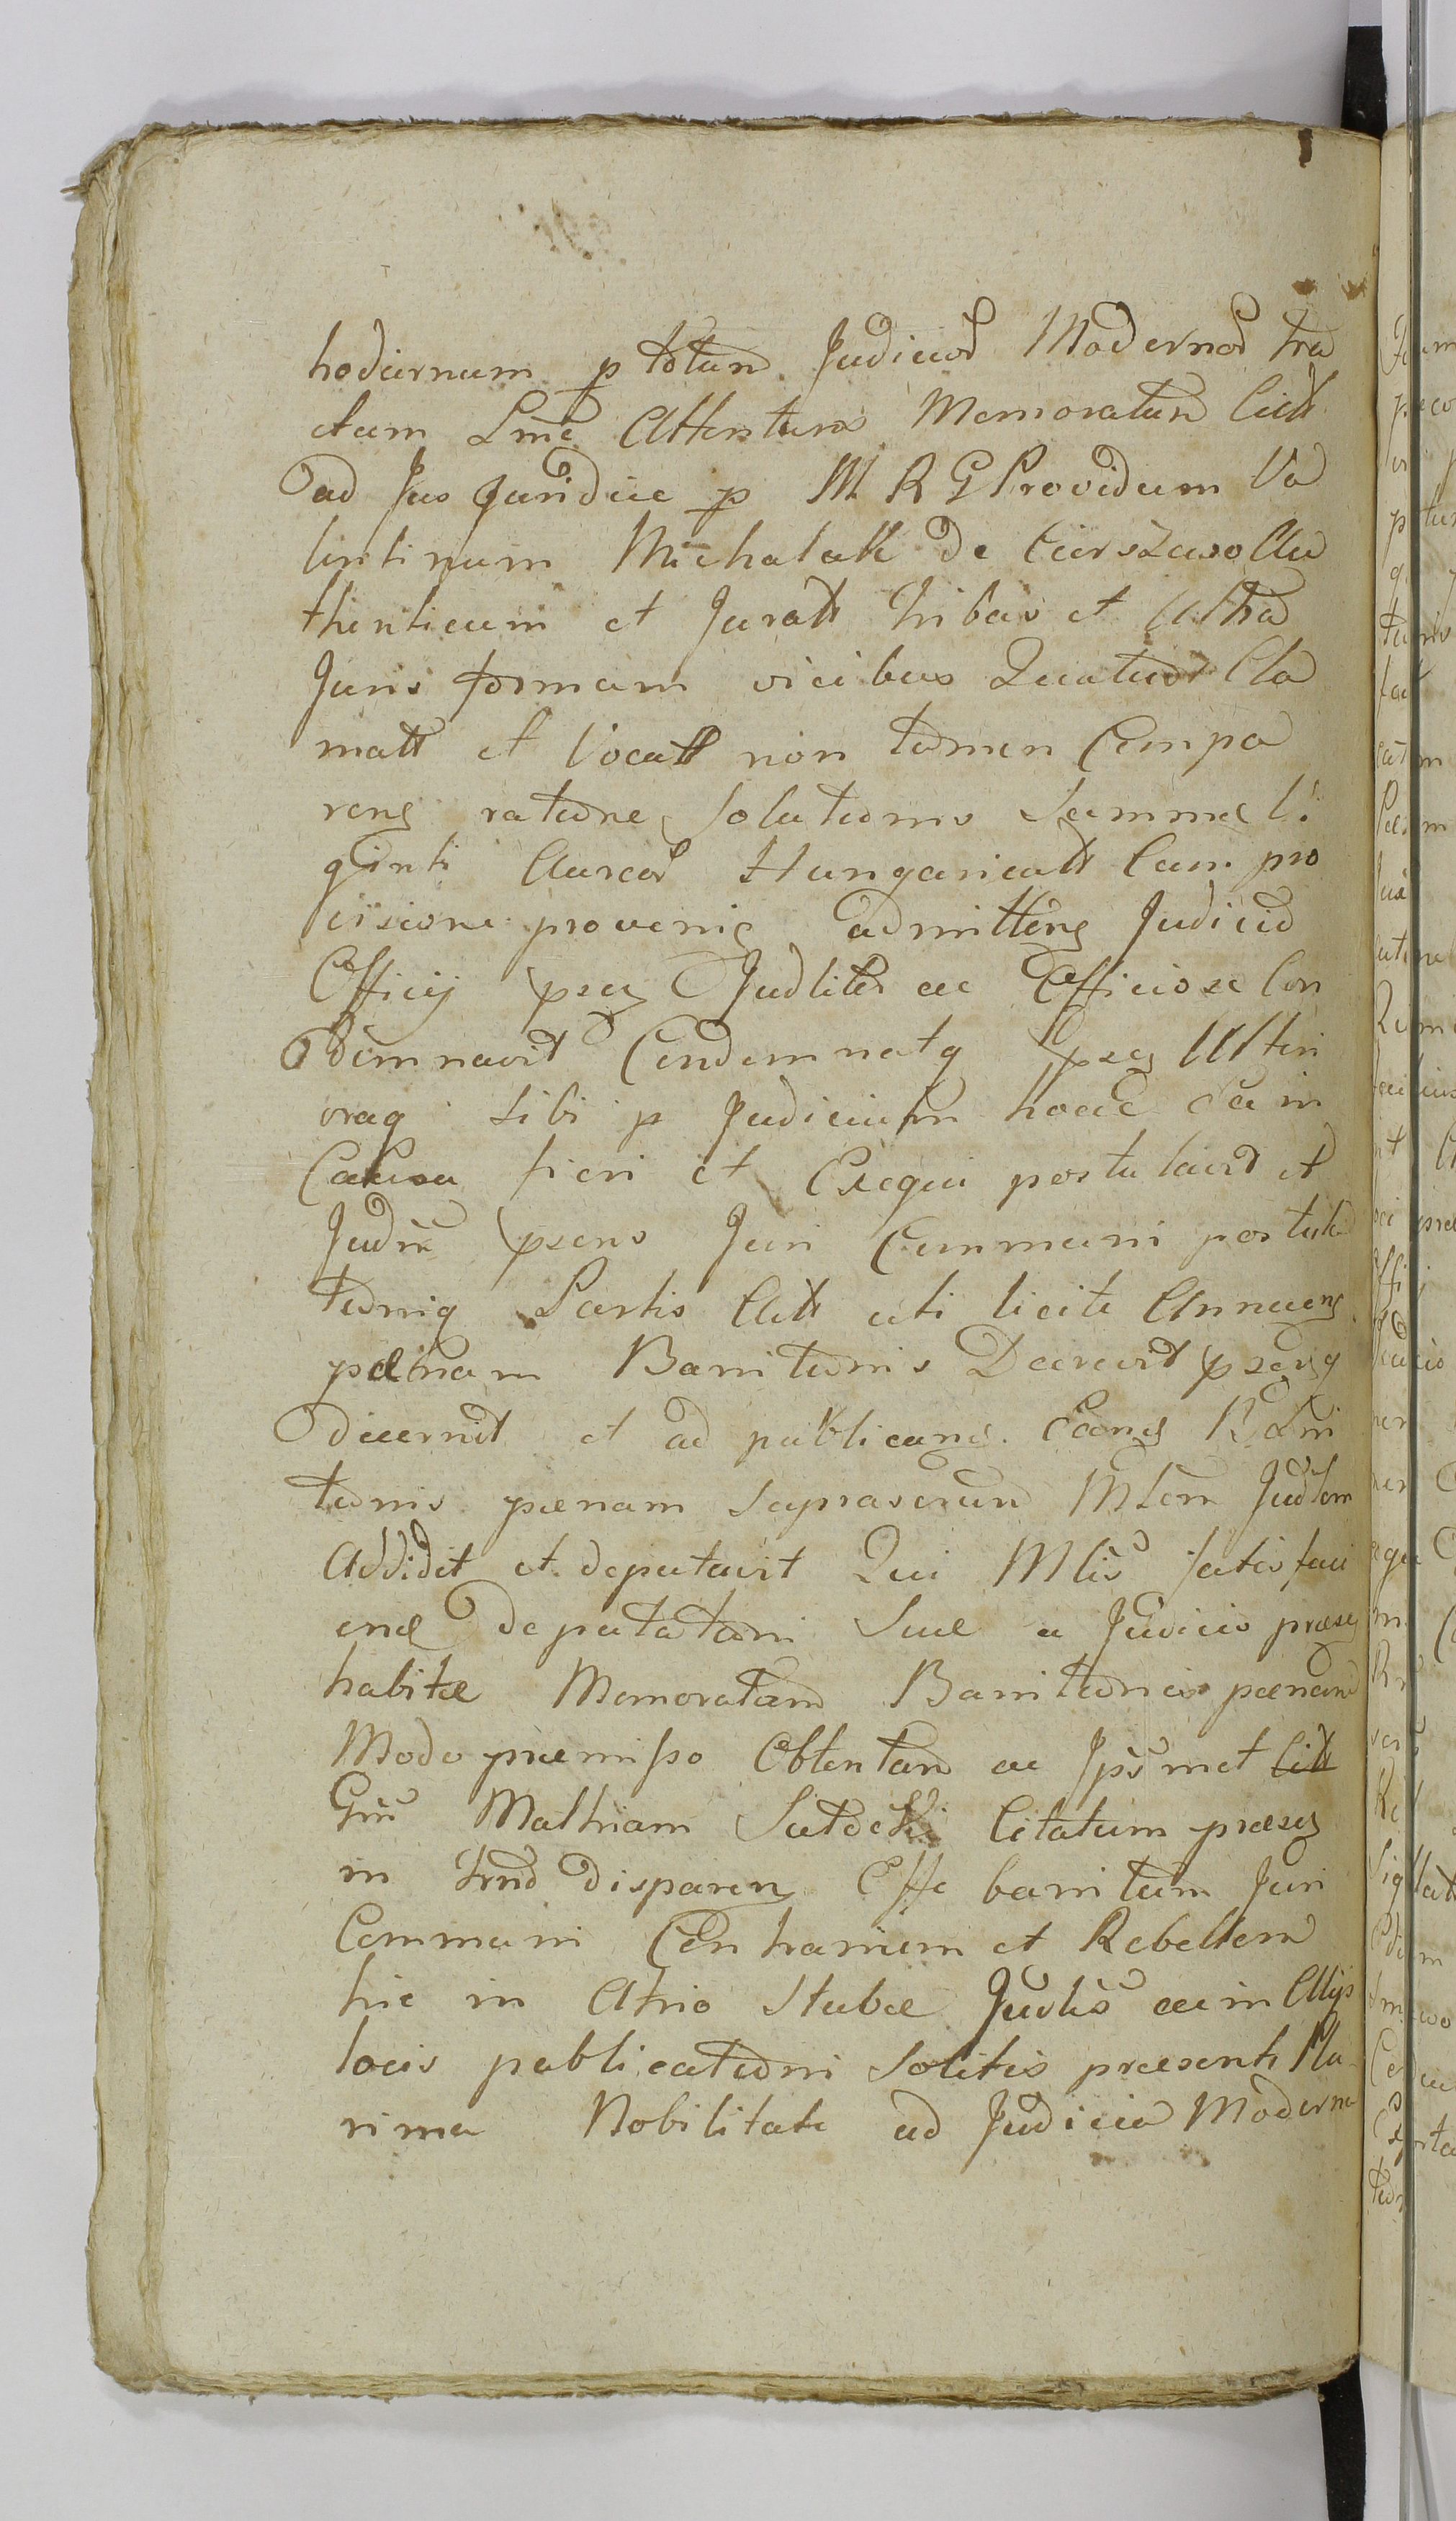 hodiernum p totum Judicior Modernor tra
ctum Lme Attentum Memoratum Citt
ad Jus Juridice p M R G Providum Va
lentinum Michalak de Au
thenticum et Juratt tribus et Ultra
Juris formam vicibus Quatuor Cla
matt et Vocatt non tamen Compa
reng ratione Solutionis Summae Vi
ginti Aureor Hungaricatt Cum pro
visione provenig admitteng Judicio
Officij pseg Judliter ac Officiose Con
demnavit Condemnatq pseg Ulteri
oraq sibi p Judicium hocce ea in
Causa fieri et Exequi postulavit et
Judm psens Juri Communi postula
tioniq Partis Citt uti licite Annueng
paenam Banitionis Decrevit psengq
decernit et ad publicang Eaong Bani
tionis paenam suprascrum Mlem Judlem
Addidit et deputavit Qui Mlis satisfaci
end deputationi Suae a Judicio praeseg
habitae Memoratam Banitionis paenam
Modo praemisso Obtentam ac Jpsmet
Gm Mathiam Citatum praeseg
in trno dispareng Esse banitum Juri
Communi Contrarium et Rebellem
hic in Atrio Stubae Judlis ac in Alijs
locis publicationi Solitis praesente Plu
rima Nobilitate ad Judicia Moderna